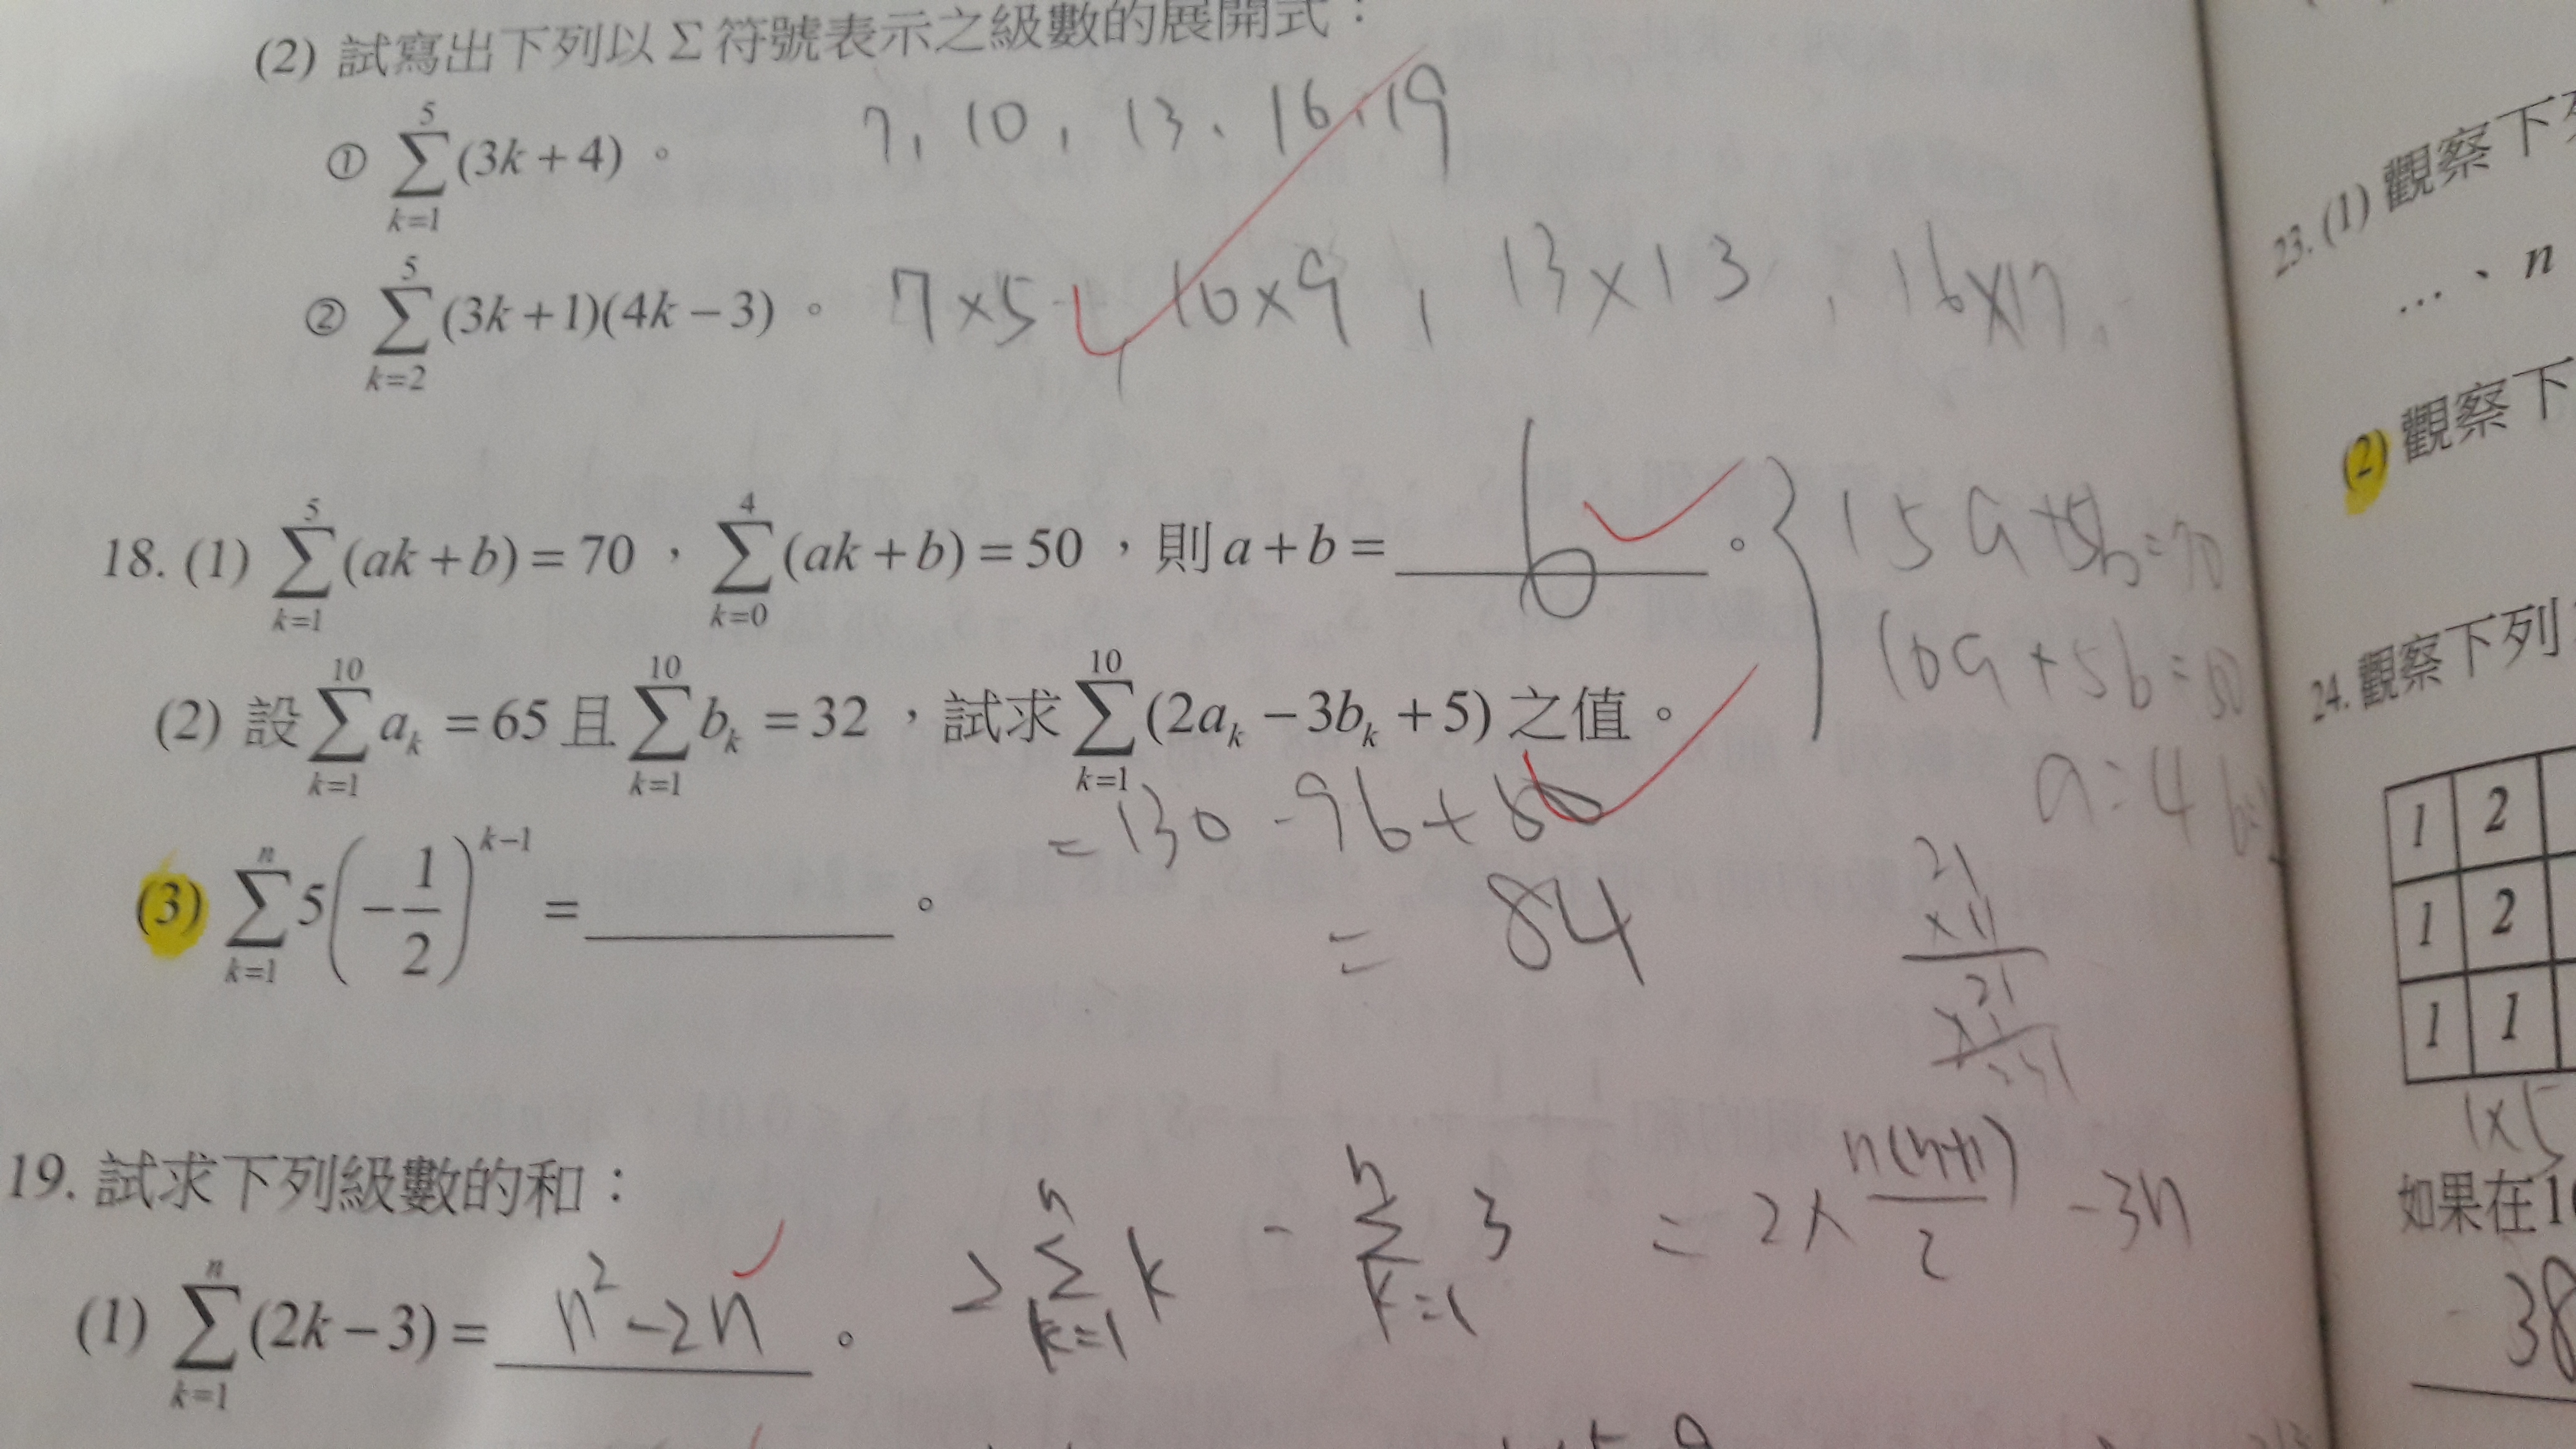 (2) 試寫出下列以 Σ 符號表示之級數的展開式：
① \sum_{k=1}^{5}(3k+4)。 7, 10, 13、16, 19
② \sum_{k=2}^{5}(3k+1)(4k-3)。 7×5, 10×9, 13×13, 16×17
18. (1) \sum_{k=1}^{5}(ak+b)=70，\sum_{k=0}^{4}(ak+b)=50，則 a+b= 6 。
15a+5b=70
10a+5b=50
a=4
(2) 設 \sum_{k=1}^{10} a_k = 65 且 \sum_{k=1}^{10} b_k = 32，試求 \sum_{k=1}^{10}(2a_k-3b_k+5) 之值。
=130-96+50
= 84
(3) \sum_{k=1}^{n} 5\left(-\frac{1}{2}\right)^{k-1} = 。
21
×11
21
19. 試求下列級數的和：
(1) \sum_{k=1}^{n}(2k-3)= n^2-2n 。 2\sum_{k=1}^{n} k - \sum_{k=1}^{n} 3 = 2×\frac{n(n+1)}{2} -3n
23. (1) 觀察下
…、n
(2) 觀察下
24. 觀察下列
1 2
1 2
1 1
1×5
如果在
38